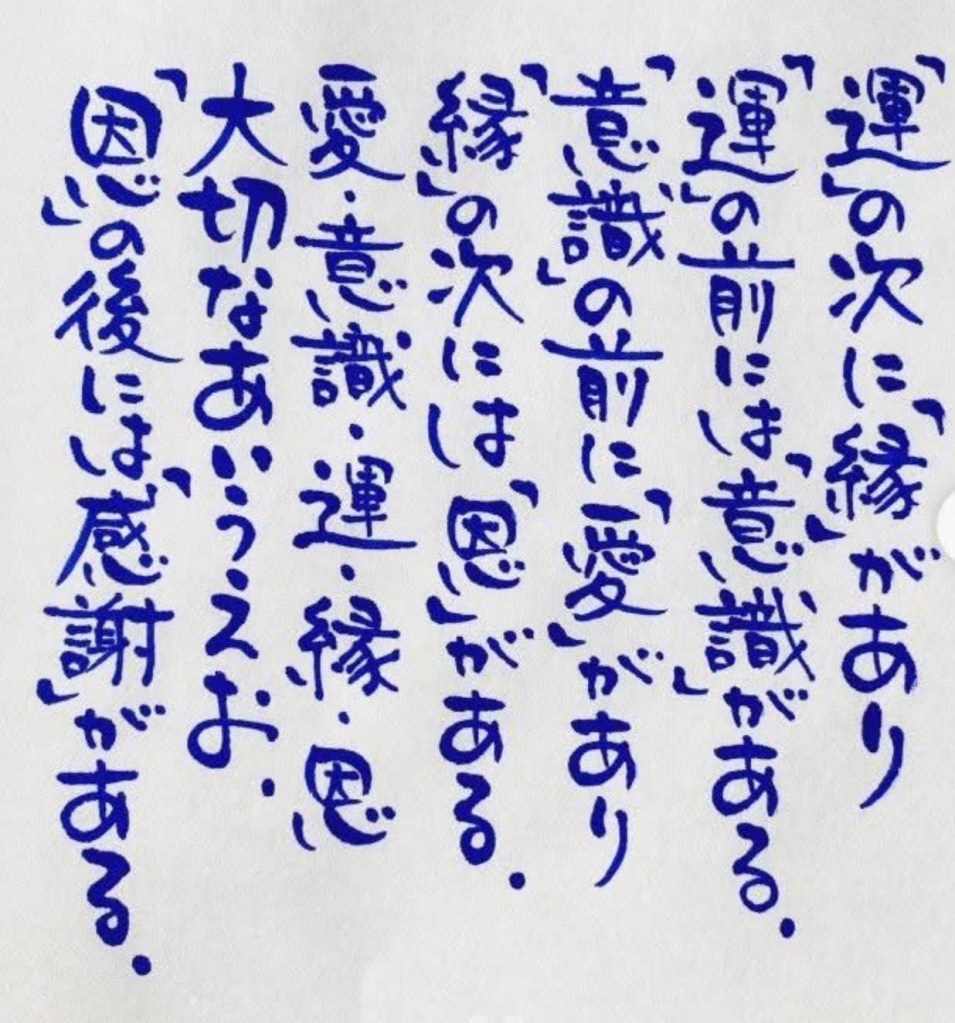 「運」の次に「縁」があり
「運」の前には「意識」がある.
「意識」の前に「愛」があり
「縁」の次には「恩」がある.
愛・意識・運・縁・恩
大切なあいうえお.
「恩」の後には「感謝」がある.